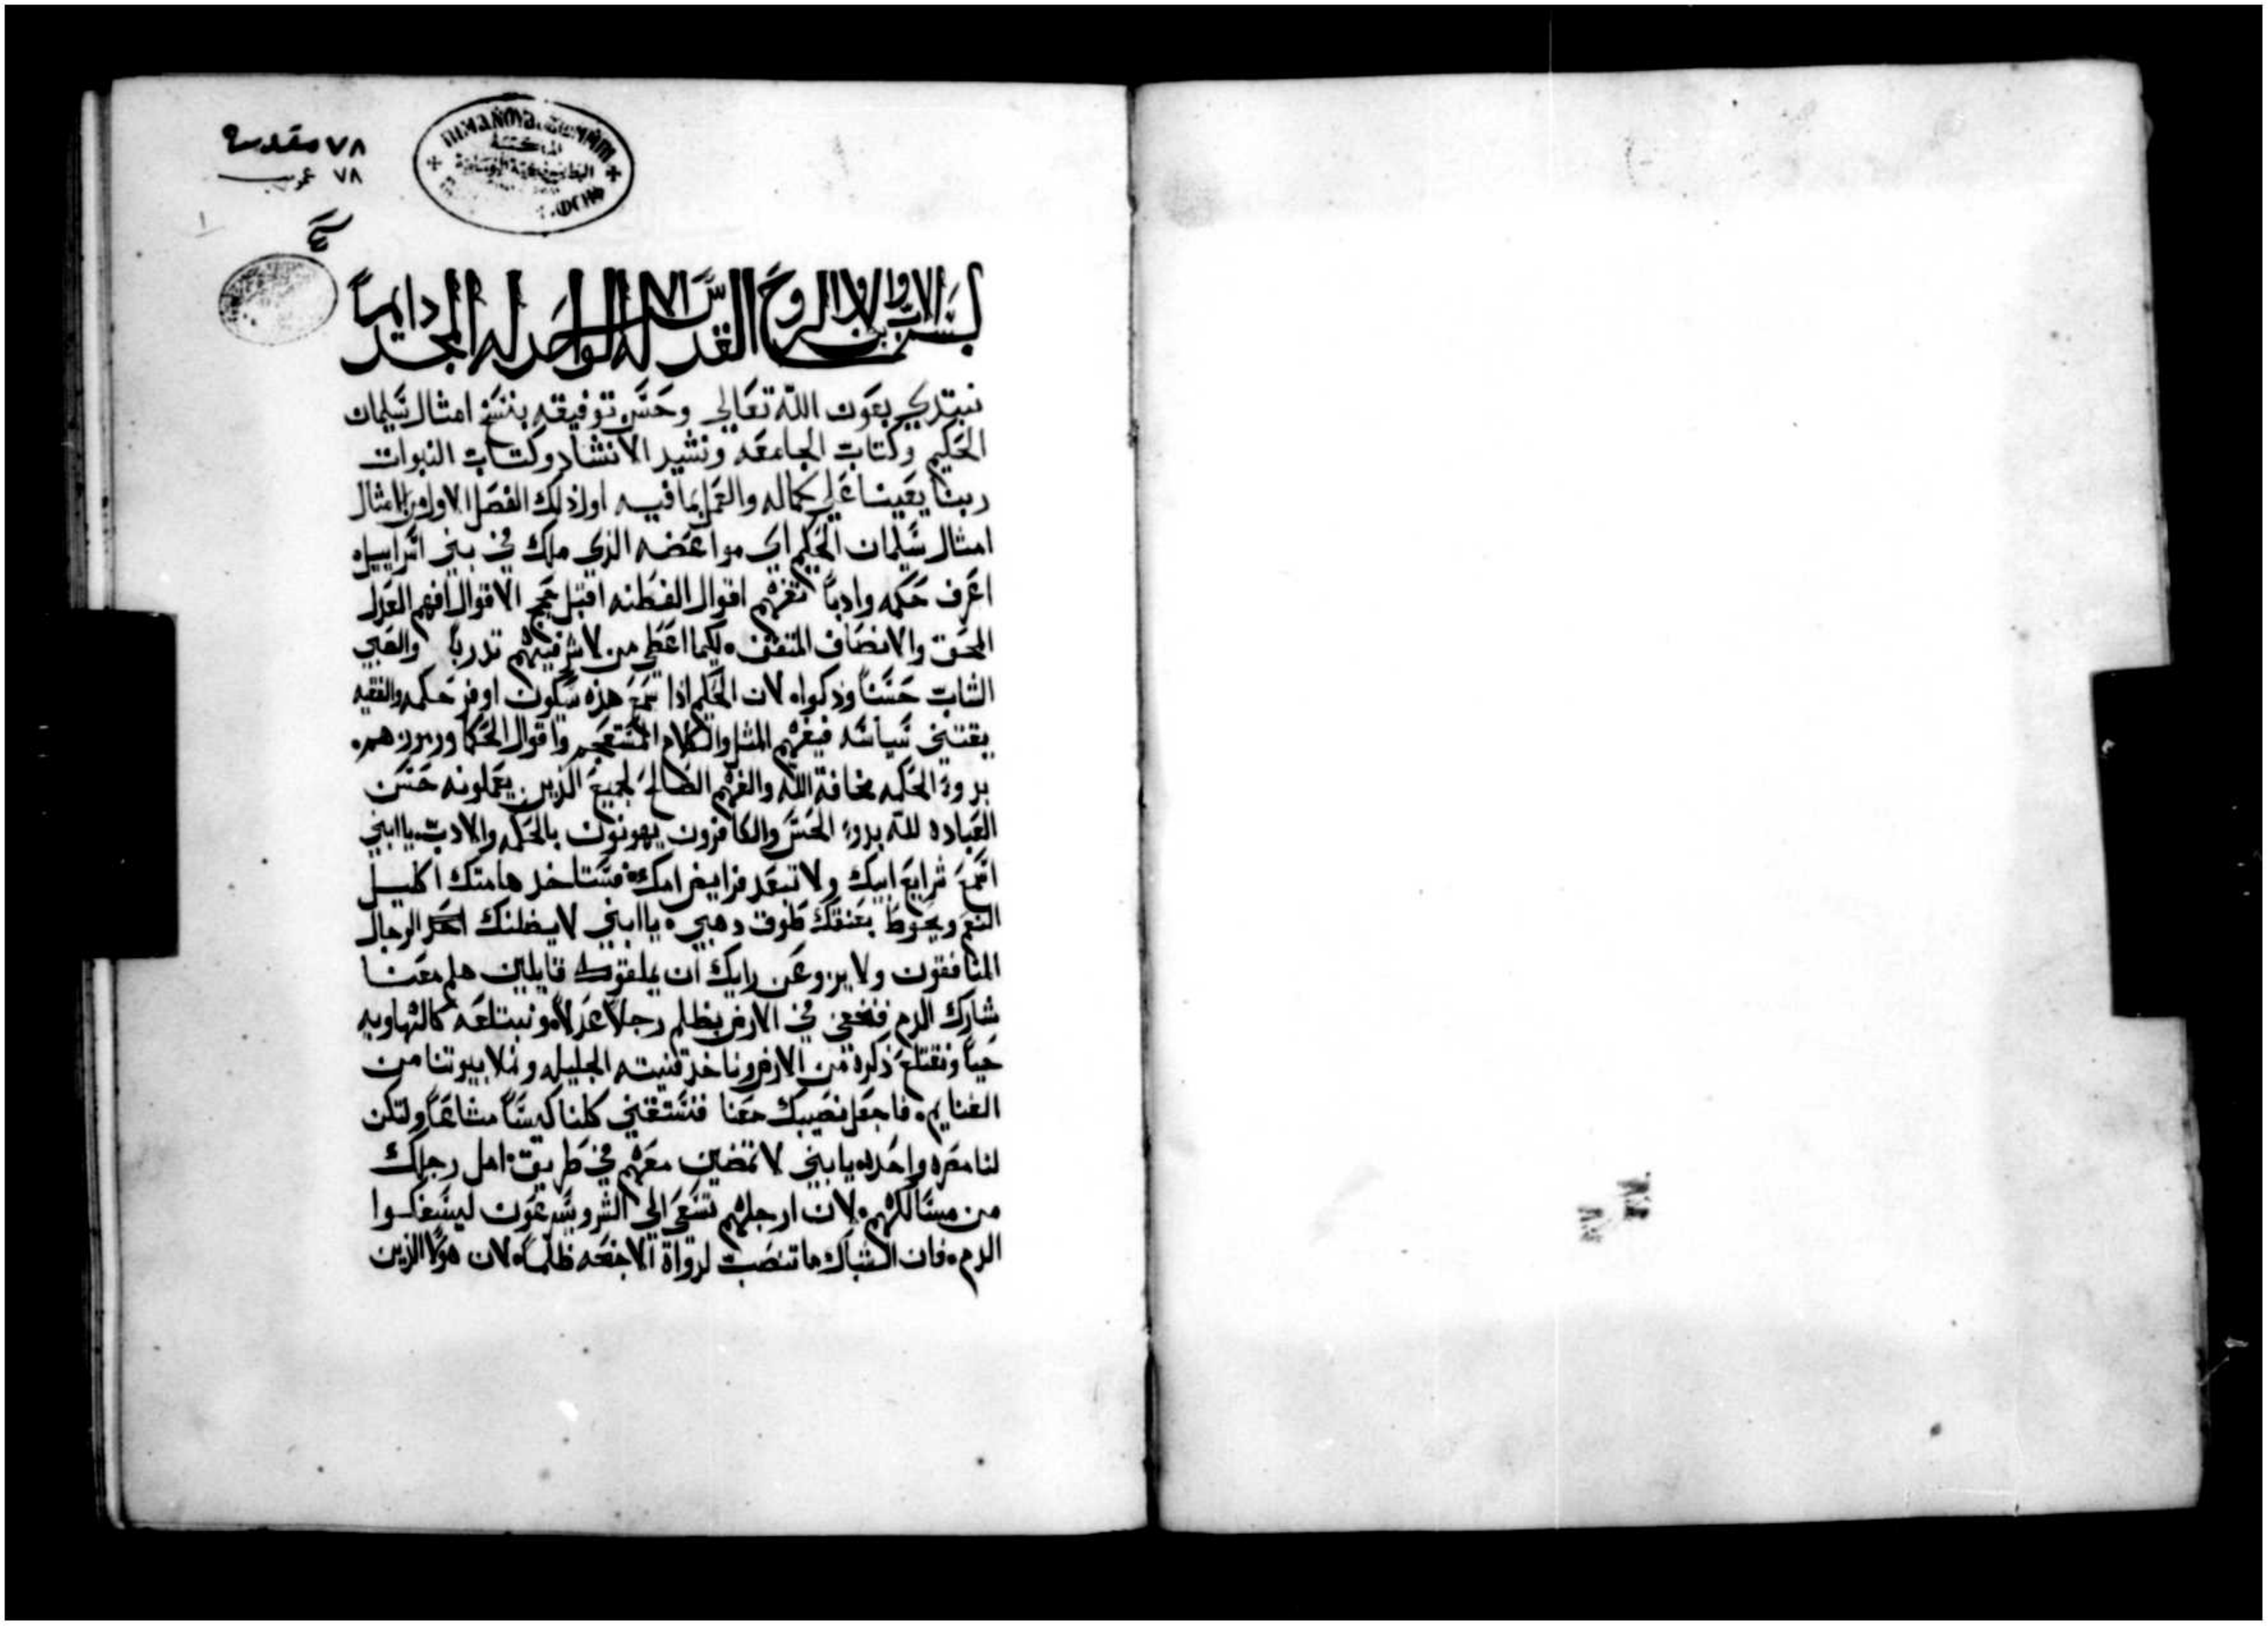 ٧٨ مقدسة
٧٨ عربي
١
بسم الاب والابن والروح القدس الاله الواحد له المجد دايماً
نبتدي بعون الله تعالي وحسن توفيقه بنسخ امثال سليمان
الحكيم وكتاب الجامعه ونشيد الانشاد وكتاب النبوات
ربنا يعيننا علي كماله والعمل بما فيه اول ذلك الفصل الاول من الامثال
امثال سليمان الحكيم اي مواعضه الذي ملك في بني اسراييل
اعرف حكمه وادباً تفهم اقوال الفطنه اقتبل حجج الاقوال افهم العدل
المحق والانصاف المثقف لكيما اعطي من لا شر فيهم تدرباً والصبي
الشاب حسناً وذكوا لان الحكيم اذا سمع هذه سيكون اوفر حكمه والفقيه
يقتني سياسه فيفهم المثل والكلام المستعجم واقوال الحكما ورموزهم
بدوء الحكمه مخافة الله والفهم الصالح لجميع الذين يعملونه حسن
العباده لله بدوء الحس والكافرون يهونون بالحكمه والادب يا ابني
اسمع شرايع ابيك ولا تبعد فرايض امك فستاخد هامتك اكليل
النعم ويحوط بعنقك طوق دهبي يا ابني لا يضلنك احد الرجال
المنافقون ولا يروعن رايك ان يملقوك قايلين هلم معنا
شارك الدم فنخفي في الارض بظلم رجلاً عدلاً ونبتلعه كالهاويه
حياً ونقتلع ذكره من الارض وناخد قنيته الجليله ونملا بيوتنا من
الغنايم فاجعل نصيبك معنا فنستغني كلنا كيساً مشاعاً ولتكن
لنا صره واحده يا بني لا تمضين معهم في طريق امل رجلك
من مسالكهم لان ارجلهم تسعي الي الشر ويسرعون ليسفكوا
الدم فان الشباك ما تنصب لدواة الاجنحه ظلماً لان هولا الذين